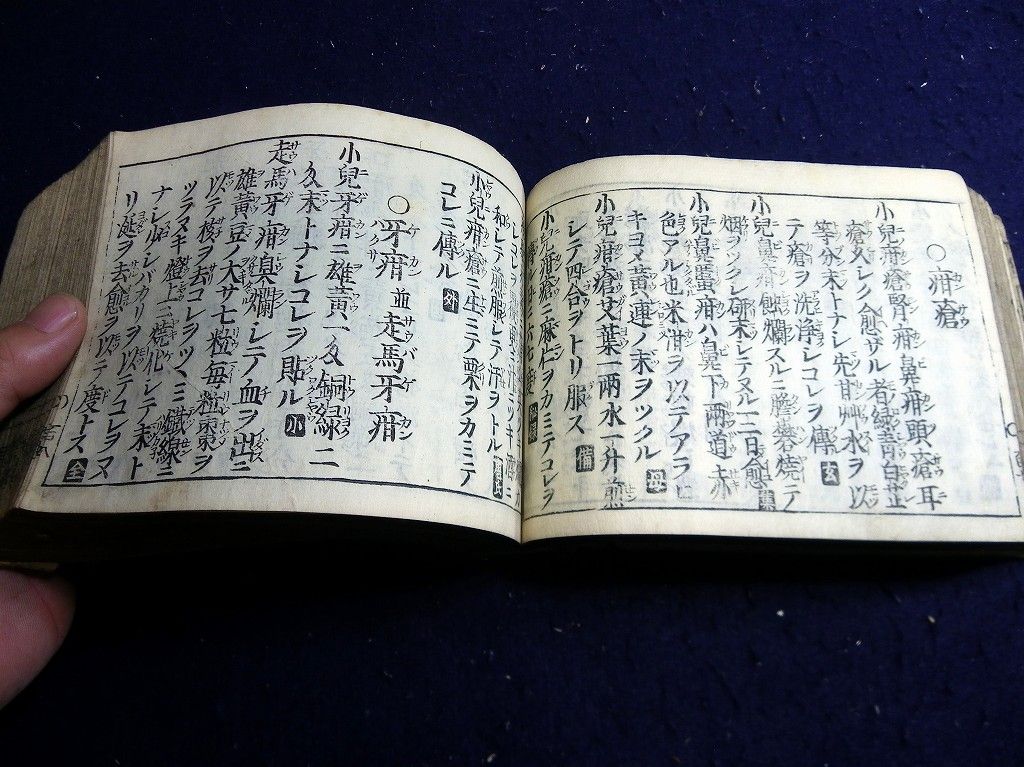 ○疳瘡
小兒疳瘡腎疳鼻疳頭瘡耳
瘡久シク愈ザル者緑青白芷
等分末トナシ先甘艸水ヲ以
テ瘡ヲ洗浄シコレヲ傳 玄
小兒鼻疳蝕爛スルニ膽礬燒テ
烟ヲツクシ研末シテヌル一二日愈 集
小兒鼻䘌疳ハ鼻下兩道赤
色アル也米泔ヲ以テアラヒ
キヨメ黄連ノ末ヲツクル 母
小兒疳瘡艾葉一兩水一升煎
シテ四合ヲトリ服ス 備
小兒疳瘡ニ麻仁ヲカミテコレヲ
和シテ頓服シテ汗ヲトル
小兒疳瘡ニ生ニテ栗ヲカミテ
コレニ傳ル 外
○牙疳並走馬牙疳
小兒牙疳ニ雄黄一匁銅緑二
匁末トナシコレヲ貼ル 小
走馬牙疳臭爛シテ血ヲ出ニ
雄黄豆ノ大サ七粒毎粒棗ヲ
以テ核ヲ去コレヲツヽミ鐵線ニ
ツラヌキ燈上ニ燒化シテ末ト
ナシ少シバカリヲ以テコレヲヌ
リ涎ヲ去愈ヲ以テ度トス 全